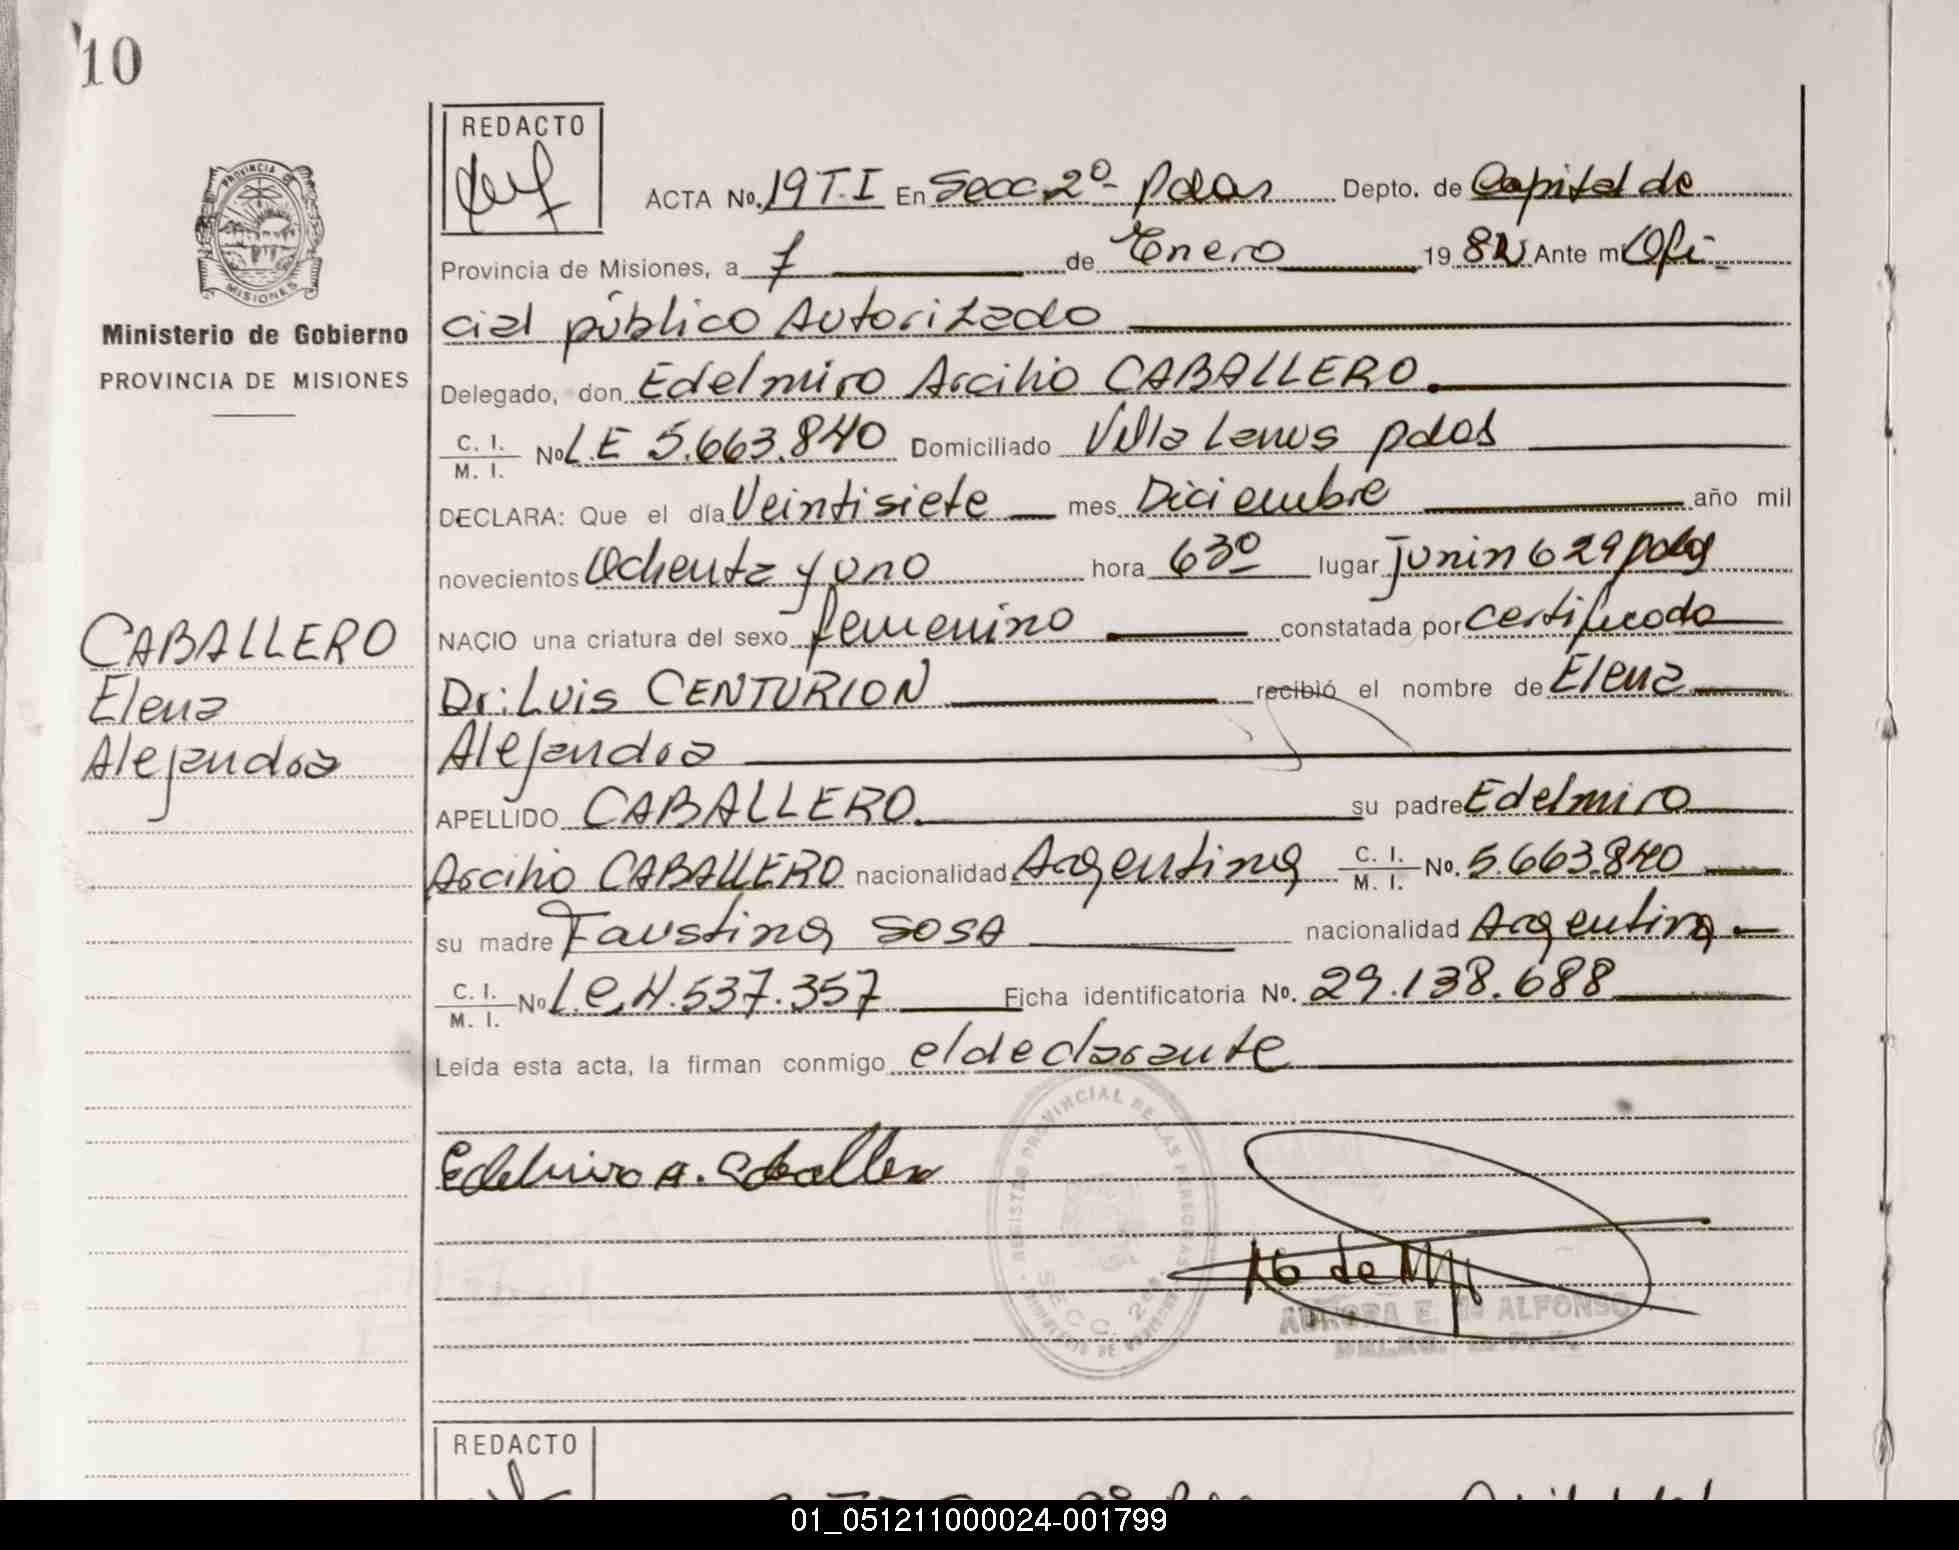 10
REDACTO
ACTA No. 19 T.I En Secc 2º Pdas Depto. de Capital de
Provincia de Misiones, a 7 de Enero 1982 Ante mi Ofi-
cial público Autorizado
Delegado, don Edelmiro Arcilio CABALLERO.
C. I. / M. I. No L.E 5.663.840 Domiciliado Villa Lanus pdas
DECLARA: Que el día Veintisiete mes Diciembre año mil
novecientos Ochenta y uno hora 630 lugar junin 629 pdas
NACIO una criatura del sexo femenino constatada por certificado
Dr: Luis CENTURION recibió el nombre de Elena
Alejandra
APELLIDO CABALLERO. su padre Edelmiro
Arcilio CABALLERO nacionalidad Argentina C. I. / M. I. No. 5.663.840
su madre Faustina SOSA nacionalidad Argentina
C. I. / M. I. No L.C.4.537.357 Ficha identificatoria No. 29.138.688
Leída esta acta, la firman conmigo el declarante
Edelmiro A. Caballero
PROVINCIA DE
MISIONES
Ministerio de Gobierno
PROVINCIA DE MISIONES
CABALLERO
Elena
Alejandra
REGISTRO PROVINCIAL DE LAS PERSONAS
SECC. 2da
AURORA E. ALFONSO
REDACTO
01_051211000024-001799